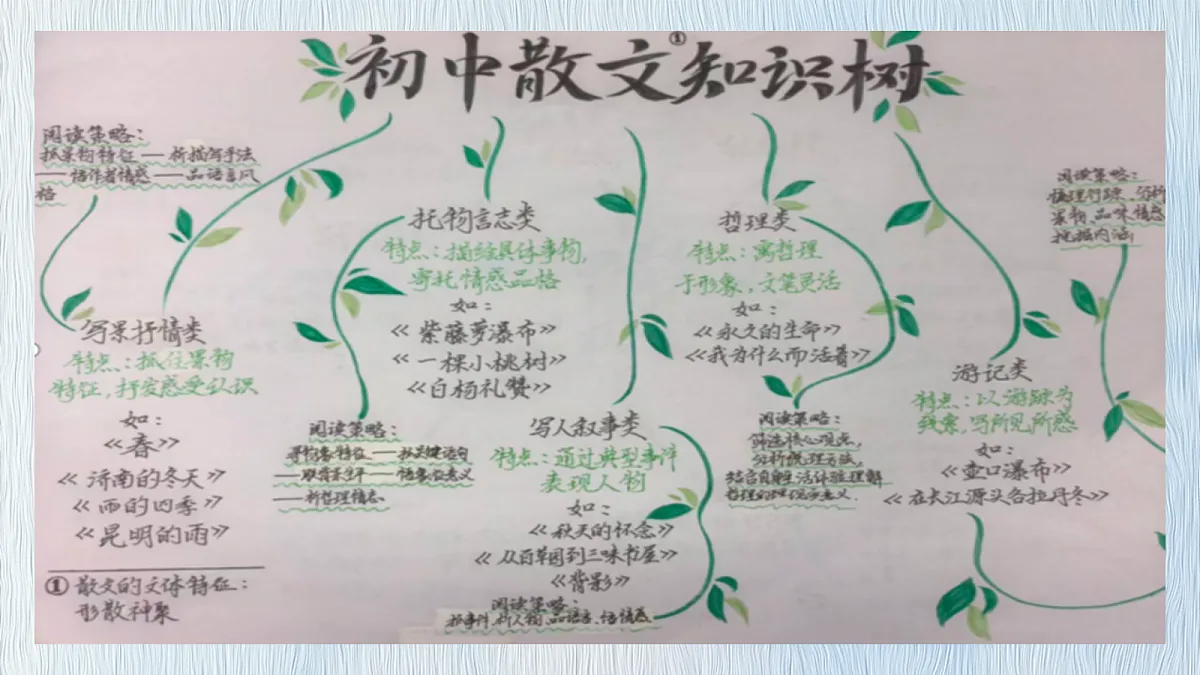 初中散文①知识树
阅读策略：
抓景物特征——析描写手法
——悟作者情感——品语言风
格
写景抒情类
特点：抓住景物
特征，抒发感受认识
如：
《春》
《济南的冬天》
《雨的四季》
《昆明的雨》
①散文的文体特征：
形散神聚
托物言志类
特点：描绘具体事物，
寄托情感品格
如：
《紫藤萝瀑布》
《一棵小桃树》
《白杨礼赞》
阅读策略：
寻物象特征——抓关键语句
——联背景生平——悟象征意义
——析哲理情志
写人叙事类
特点：通过典型事件
表现人物
如：
《秋天的怀念》
《从百草园到三味书屋》
《背影》
阅读策略：
抓事件、析人物、品语言、悟情感
哲理类
特点：寓哲理
于形象，文笔灵活
如：
《永久的生命》
《我为什么而活着》
阅读策略：
筛选核心观点，
分析说理方法，
结合自身生活体验理解
哲理的现实意义.
游记类
特点：以游踪为
线索，写所见所感
如：
《壶口瀑布》
《在长江源头各拉丹冬》
阅读策略：
梳理行踪、分析
景物、品味情感
挖掘内涵